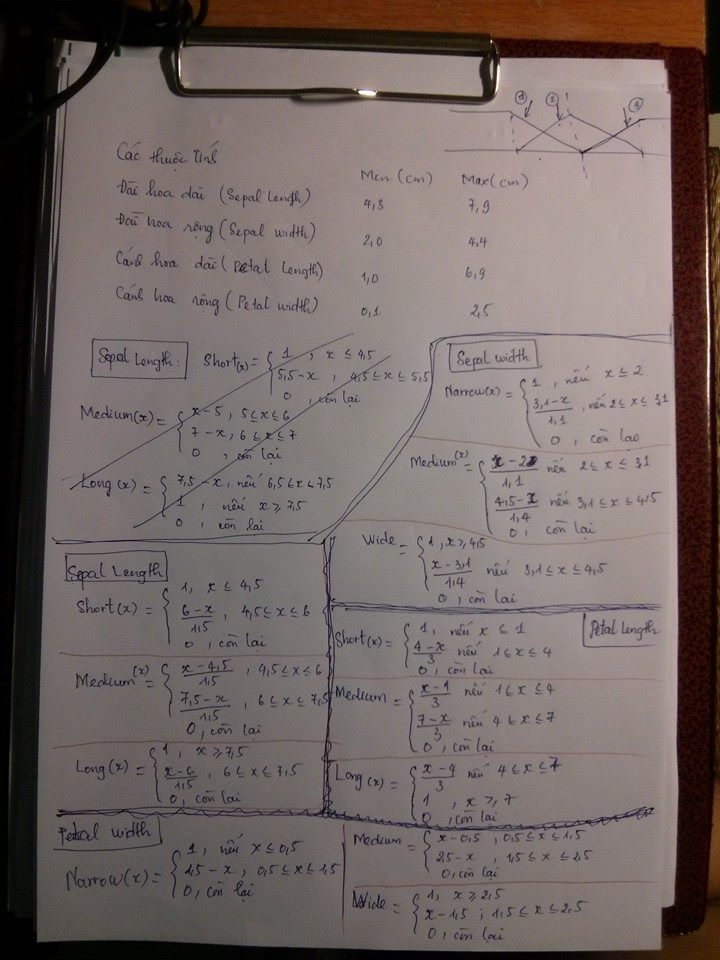 ① ② ③
Các thuộc tính
Min (cm) Max (cm)
Đài hoa dài (Sepal Length) 4,3 7,9
Đài hoa rộng (Sepal width) 2,0 4,4
Cánh hoa dài (Petal Length) 1,0 6,9
Cánh hoa rộng (Petal width) 0,1 2,5
Sepal Length:
Short(x) = { 1 , x ≤ 4,5
5,5-x , 4,5 ≤ x ≤ 5,5
0 , còn lại
Medium(x) = { x-5 , 5 ≤ x ≤ 6
7-x , 6 ≤ x ≤ 7
0 , còn lại
Long (x) = { 7,5-x , nếu 6,5 ≤ x ≤ 7,5
1 , nếu x ≥ 7,5
0 , còn lại
Sepal width
Narrow(x) = { 1 , nếu x ≤ 2
(3,1-x)/1,1 , nếu 2 ≤ x ≤ 3,1
0 , còn lại
Medium(x) = { (x-2)/1,1 nếu 2 ≤ x ≤ 3,1
(4,5-x)/1,4 nếu 3,1 ≤ x ≤ 4,5
0 , còn lại
Wide = { 1 , x ≥ 4,5
(x-3,1)/1,4 nếu 3,1 ≤ x ≤ 4,5
0 , còn lại
Sepal Length
Short(x) = { 1, x ≤ 4,5
(6-x)/1,5 , 4,5 ≤ x ≤ 6
0 , còn lại
Medium(x) = { (x-4,5)/1,5 , 4,5 ≤ x ≤ 6
(7,5-x)/1,5 , 6 ≤ x ≤ 7,5
0, còn lại
Long(x) = { 1, x ≥ 7,5
(x-6)/1,5 , 6 ≤ x ≤ 7,5
0, còn lại
Petal Length
Short(x) = { 1, nếu x ≤ 1
(4-x)/3 nếu 1 ≤ x ≤ 4
0, còn lại
Medium = { (x-1)/3 nếu 1 ≤ x ≤ 4
(7-x)/3 nếu 4 ≤ x ≤ 7
0, còn lại
Long (x) = { (x-4)/3 nếu 4 ≤ x ≤ 7
1 , x ≥ 7
0, còn lại
Petal width
Narrow(x) = { 1, nếu x ≤ 0,5
1,5-x , 0,5 ≤ x ≤ 1,5
0, còn lại
Medium = { x-0,5 , 0,5 ≤ x ≤ 1,5
2,5-x , 1,5 ≤ x ≤ 2,5
0, còn lại
Wide = { 1, x ≥ 2,5
x-1,5 , 1,5 ≤ x ≤ 2,5
0, còn lại